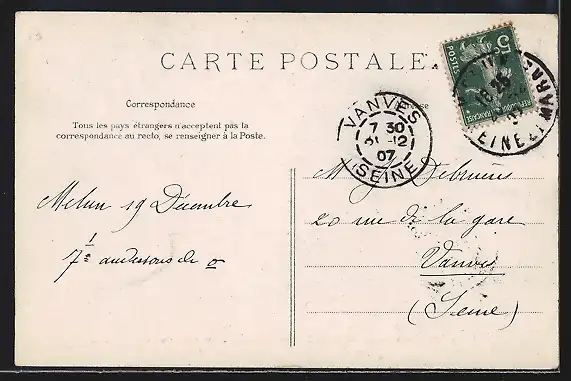 CARTE POSTALE
Correspondance
Tous les pays étrangers n'acceptent pas la
correspondance au recto, se renseigner à la Poste.
5c
POSTES
REPUBLIQUE FRANÇAISE
VANVES
7 30
21 -12
07
SEINE
SEINE-ET-MARNE
Melun 19 Décembre
7° 1/2 au dessous de 0
M J Debruères
20 rue de la gare
Vanves
(Seine)